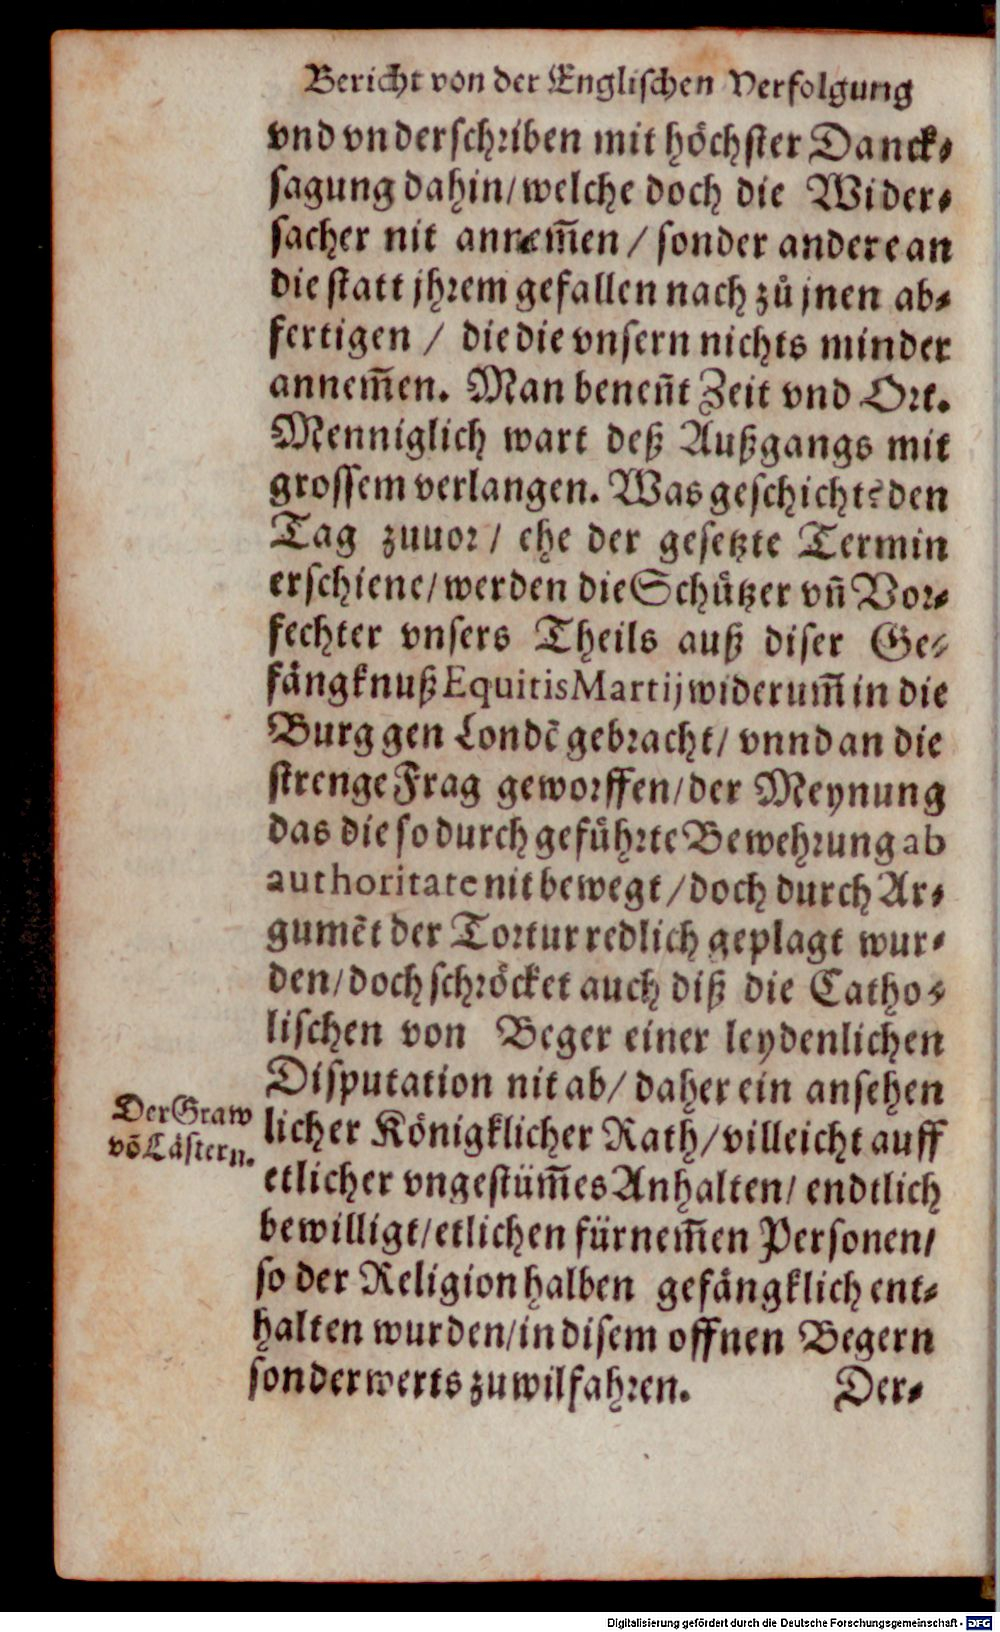 Bericht von der Englischen Verfolgung
vnd vnderschriben mit höchster Danck⸗
sagung dahin/ welche doch die Wider⸗
sacher nit annem̃en / sonder andere an
die statt jhrem gefallen nach zů jnen ab⸗
fertigen / die die vnsern nichts minder
annem̃en. Man beneñt Zeit vnd Ort.
Menniglich wart deß Außgangs mit
grossem verlangen. Was geschicht? den
Tag zuuor / ehe der gesetzte Termin
erschiene/ werden die Schützer vñ Vor⸗
fechter vnsers Theils auß diser Ge⸗
fängknuß Equitis Martij widerum̃ in die
Burg gen Londẽ gebracht/ vnnd an die
strenge Frag geworffen/ der Meynung
das die so durch geführte Bewehrung ab
authoritate nit bewegt / doch durch Ar⸗
gumẽt der Tortur redlich geplagt wur⸗
den/ doch schröcket auch diß die Catho⸗
lischen von Beger einer leydenlichen
Disputation nit ab/ daher ein ansehen
Der Graw
võ Lästern.
licher Königklicher Rath/ villeicht auff
etlicher vngestüm̃es Anhalten/ endtlich
bewilligt/ etlichen fürnem̃en Personen/
so der Religion halben gefängklich ent⸗
halten wurden/ in disem offnen Begern
sonderwerts zu wilfahren.
Der⸗
Digitalisierung gefördert durch die Deutsche Forschungsgemeinschaft - DFG